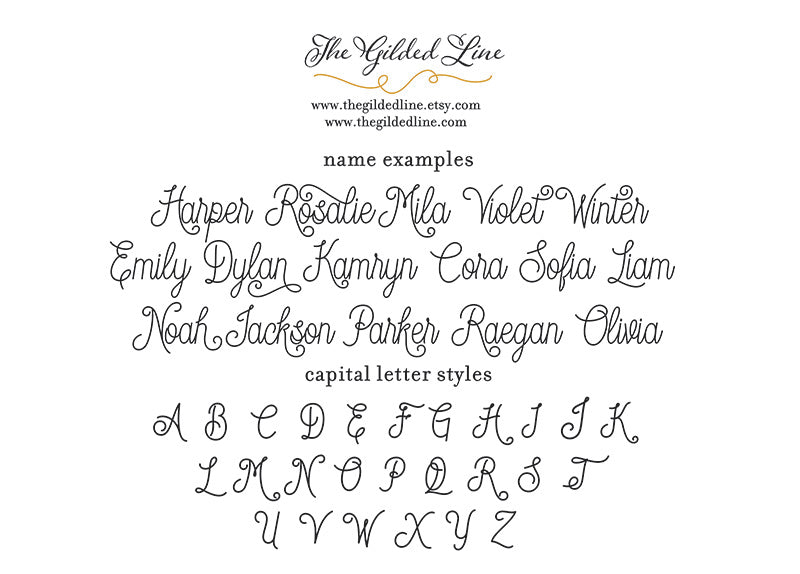 The Gilded Line
www.thegildedline.etsy.com
www.thegildedline.com
name examples
Harper Rosalie Mila Violet Winter
Emily Dylan Kamryn Cora Sofia Liam
Noah Jackson Parker Raegan Olivia
capital letter styles
A B C D E F G H I J K
L M N O P Q R S T
U V W X Y Z